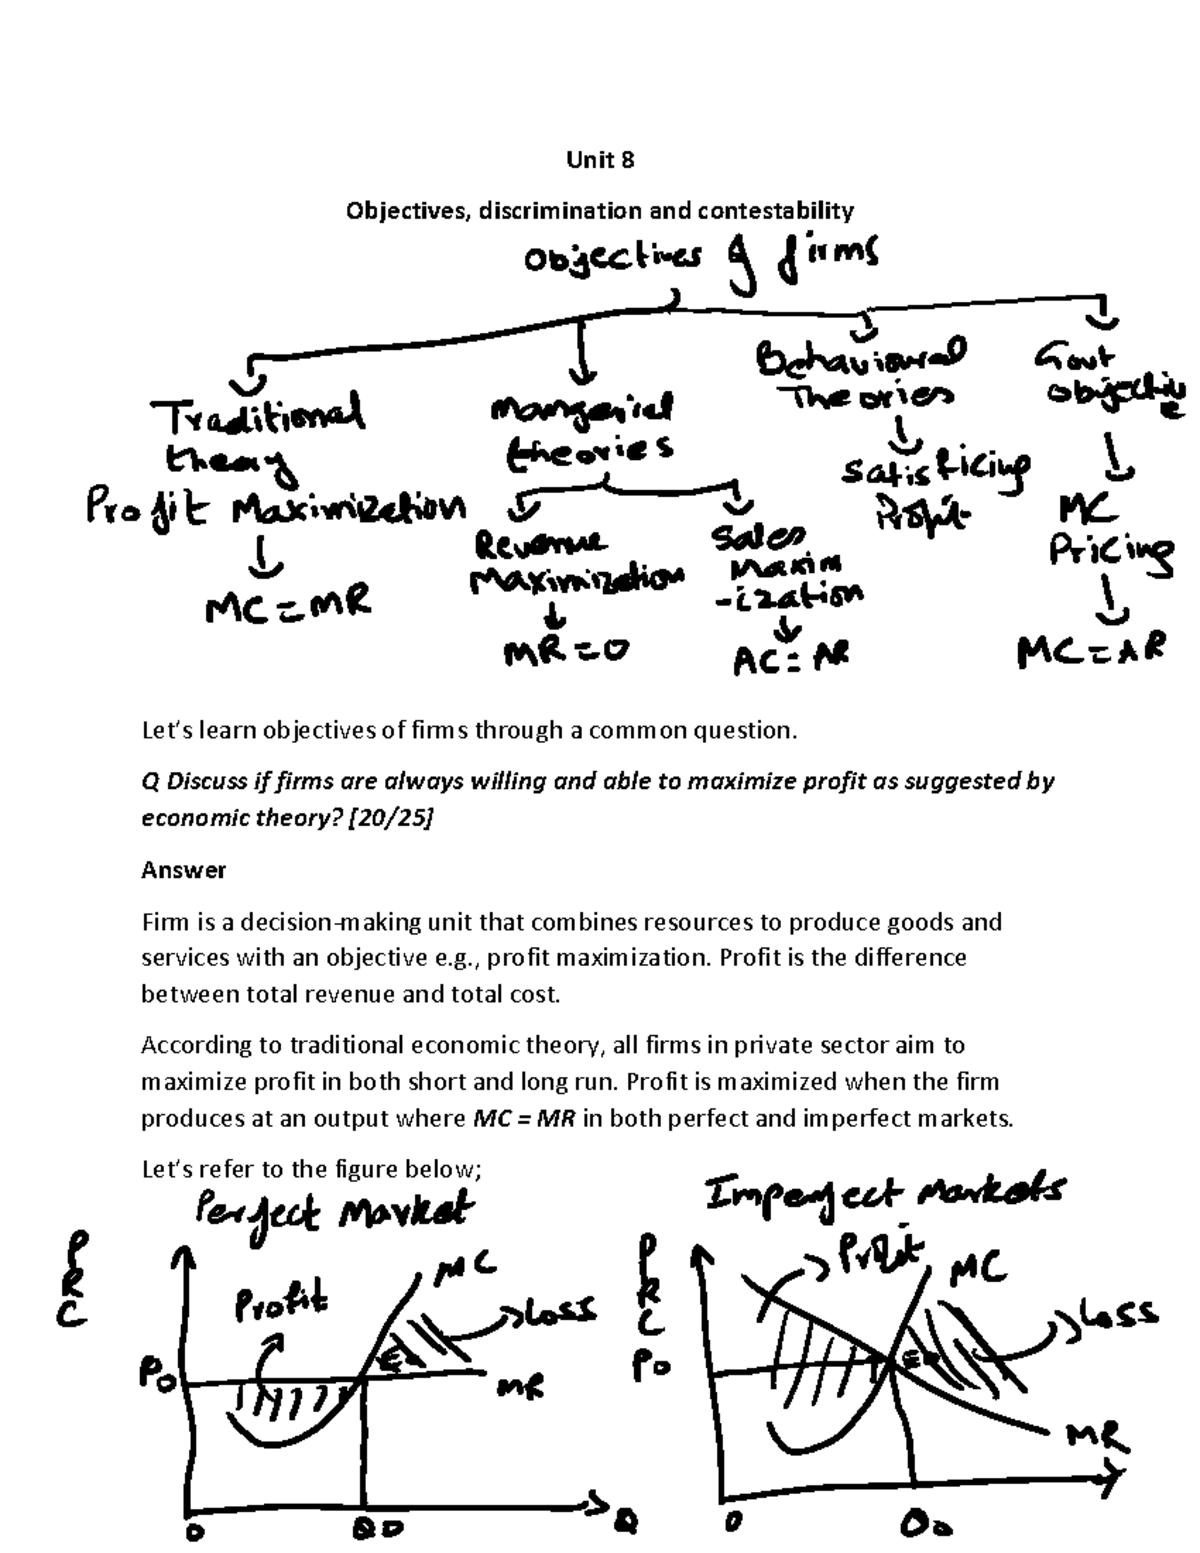 Unit 8
Objectives, discrimination and contestability
Objectives of firms
Traditional
theory
Profit Maximization
MC = MR
Managerial
theories
Revenue
Maximization
MR = 0
Sales
Maxim
-ization
AC = AR
Behavioural
Theories
Satisficing
Profit
Govt
objective
MC
Pricing
MC = AR
Let's learn objectives of firms through a common question.
Q Discuss if firms are always willing and able to maximize profit as suggested by
economic theory? [20/25]
Answer
Firm is a decision-making unit that combines resources to produce goods and
services with an objective e.g., profit maximization. Profit is the difference
between total revenue and total cost.
According to traditional economic theory, all firms in private sector aim to
maximize profit in both short and long run. Profit is maximized when the firm
produces at an output where MC = MR in both perfect and imperfect markets.
Let's refer to the figure below;
Perfect Market
P
R
C
Profit
MC
Loss
P0
E
MR
0
Q0
Q
Imperfect Markets
P
R
C
Profit
MC
Loss
P0
E
MR
0
Q0